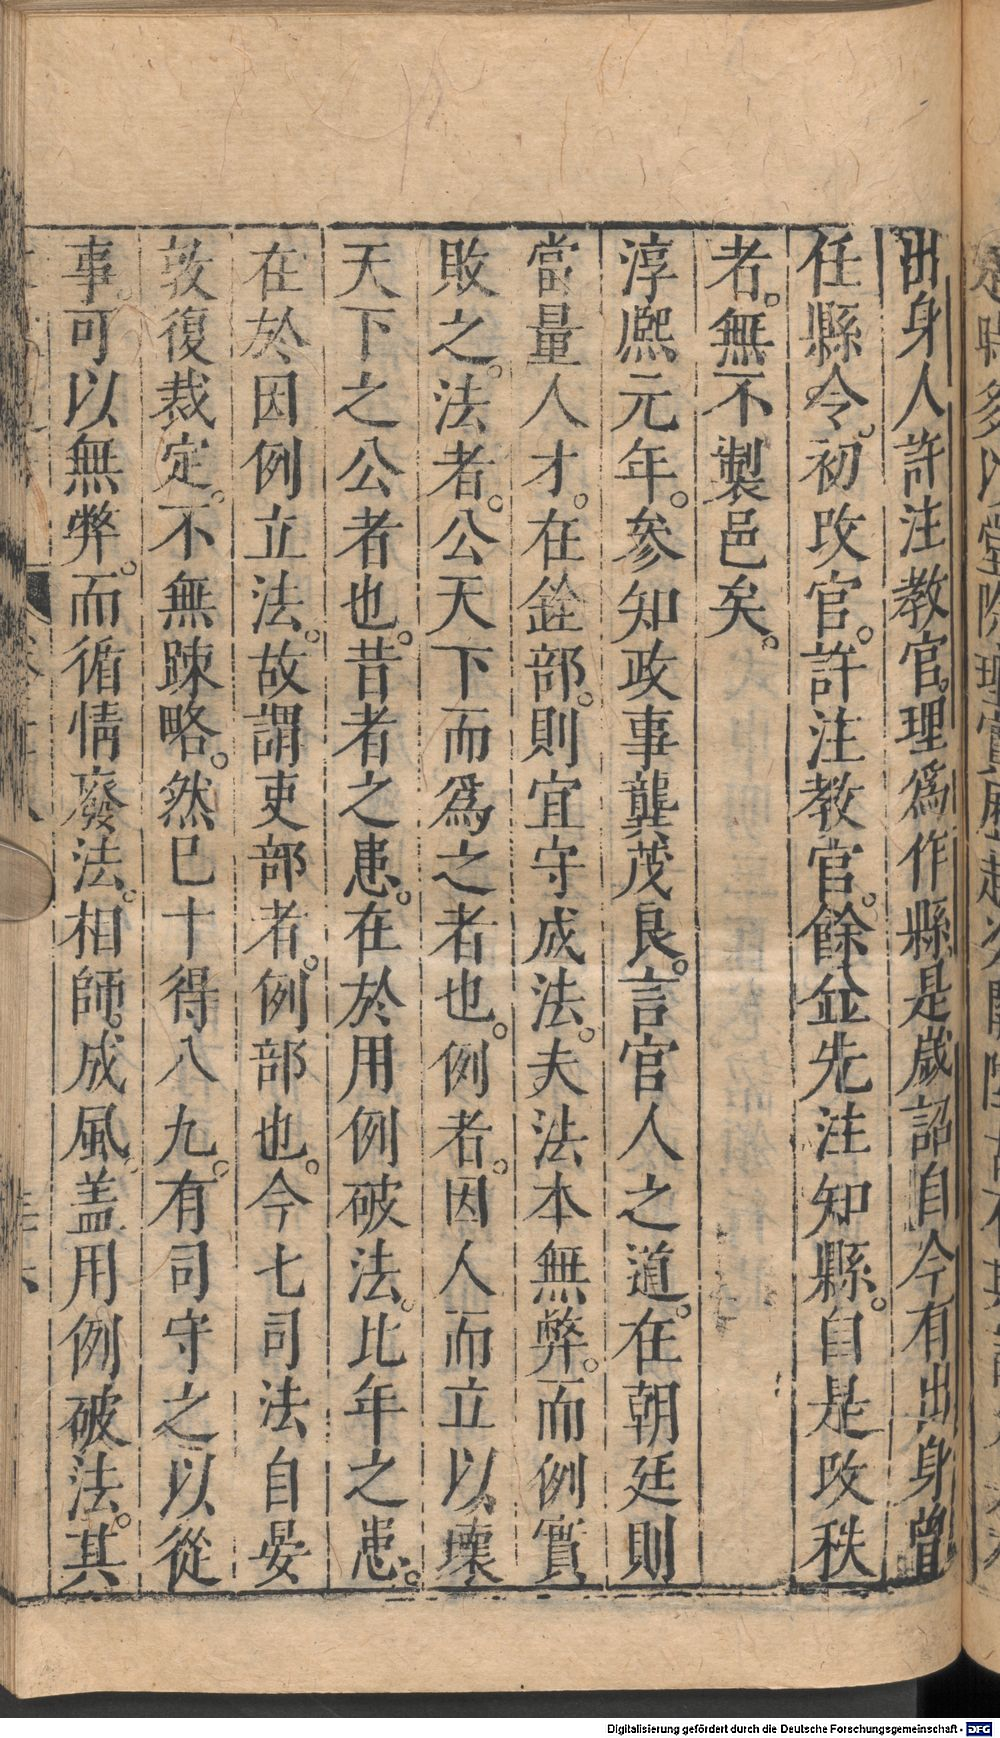 出身人許注教官。理爲作縣是歲詔自今有出身曾
任縣令。初改官。許注教官。餘並先注知縣。自是改秩
者。無不製邑矣。
淳熈元年。參知政事龔茂良。言官人之道。在朝廷則
當量人才。在銓部。則宜守成法。夫法本無弊。而例實
敗之。法者。公天下而爲之者也。例者。因人而立以壞
天下之公者也。昔者之患。在於用例破法。比年之患。
在於因例立法。故謂吏部者。例部也。今七司法自晏
敦復裁定。不無踈略。然已十得八九。有司守之以從
事。可以無弊。而循情廢法。相師成風。盖用例破法。其
Digitalisierung gefördert durch die Deutsche Forschungsgemeinschaft - DFG